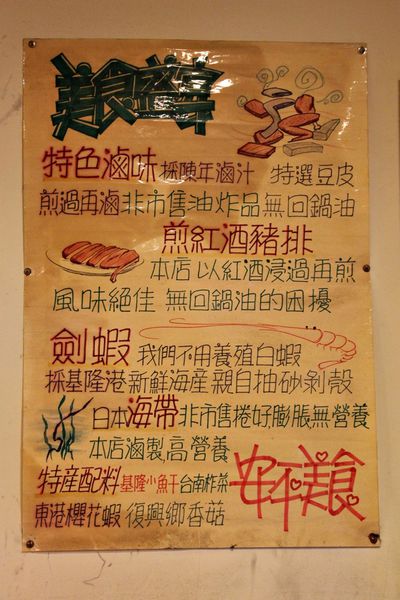 美食盛宴
特色滷味 採陳年滷汁 特選豆皮
煎過再滷非市售油炸品無回鍋油
煎紅酒豬排
本店以紅酒浸過再煎
風味絕佳 無回鍋油的困擾
劍蝦 我們不用養殖白蝦
採基隆港新鮮海產親自抽砂剝殼
日本海帶非市售捲好膨脹無營養
本店滷製,高營養
特産配料基隆小魚干台南柞菜
東港櫻花蝦 復興鄉香菇
美食